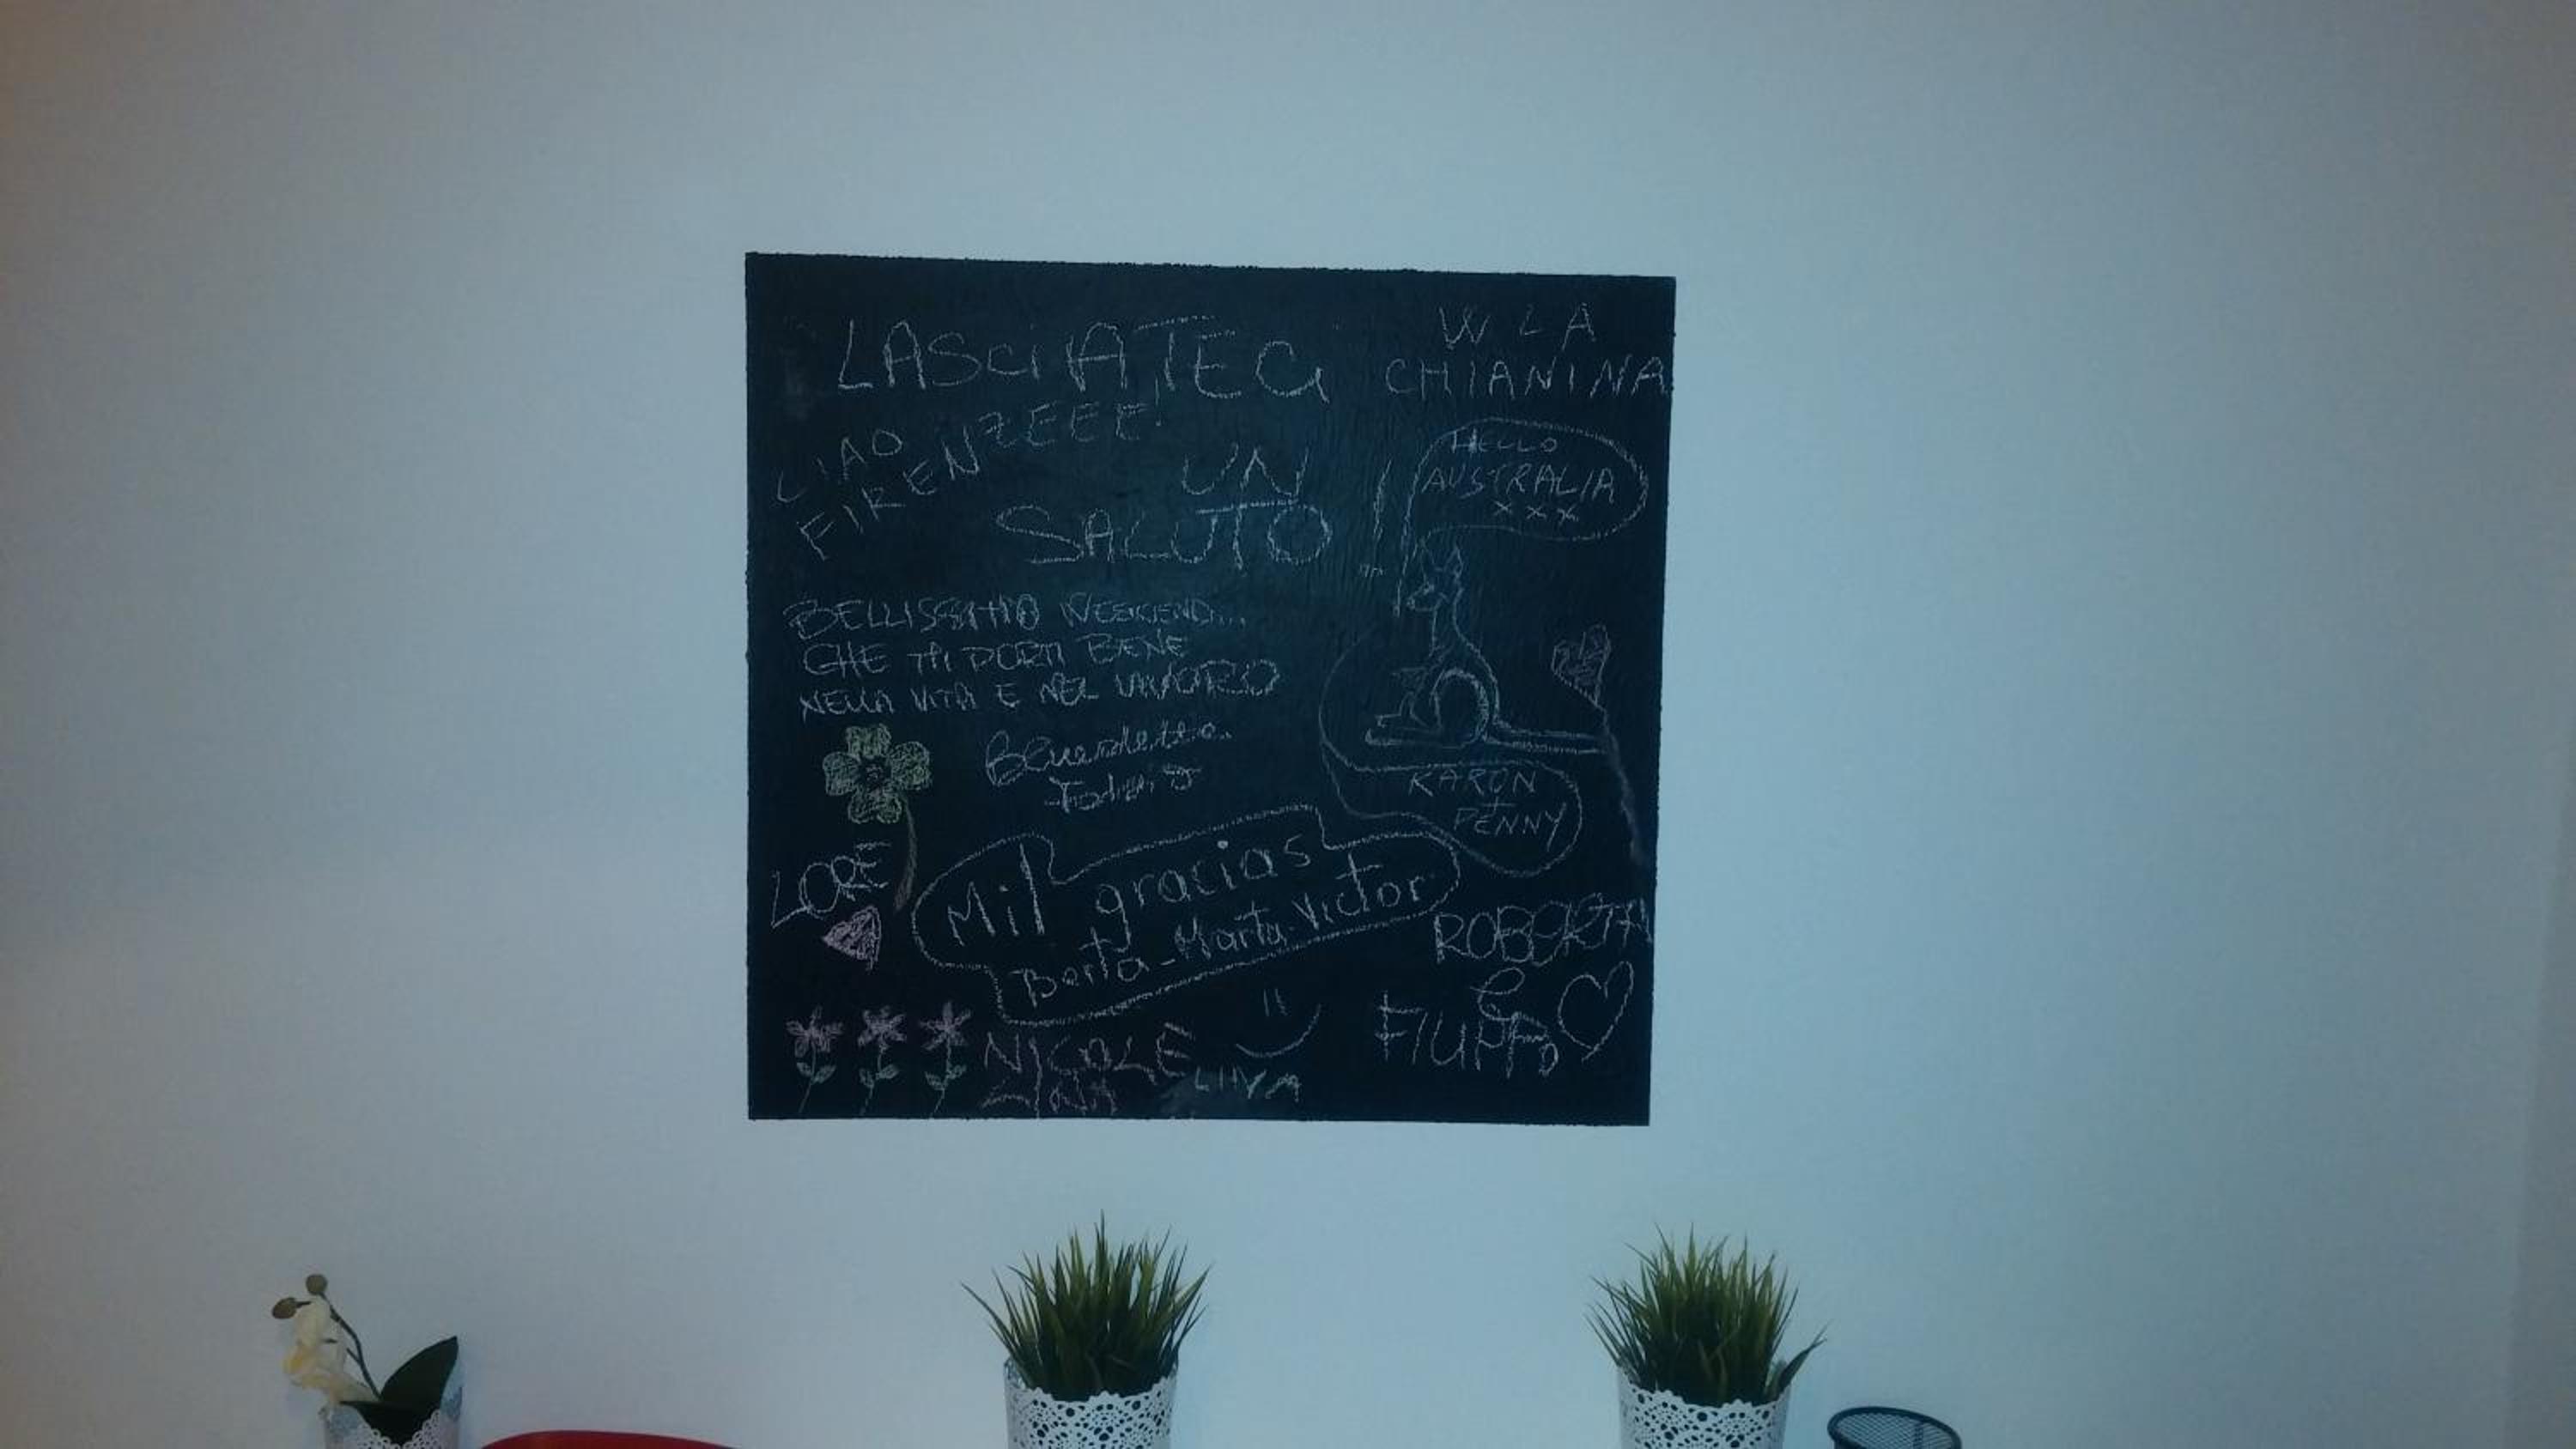 LASCIATECI
W LA
CHIANINA
CIAO
FIRENZEEE!
UN
SALUTO
!
HELLO
AUSTRALIA
xxx
BELLISSIMO WEEKEND...
CHE TI PORTI BENE
NELLA VITA E NEL LAVORO
Benedetta
KARON
+
PENNY
LORE
Mil gracias
Berta - Marta - Victor
ROBERTA
E
FILIPPO
NICOLE